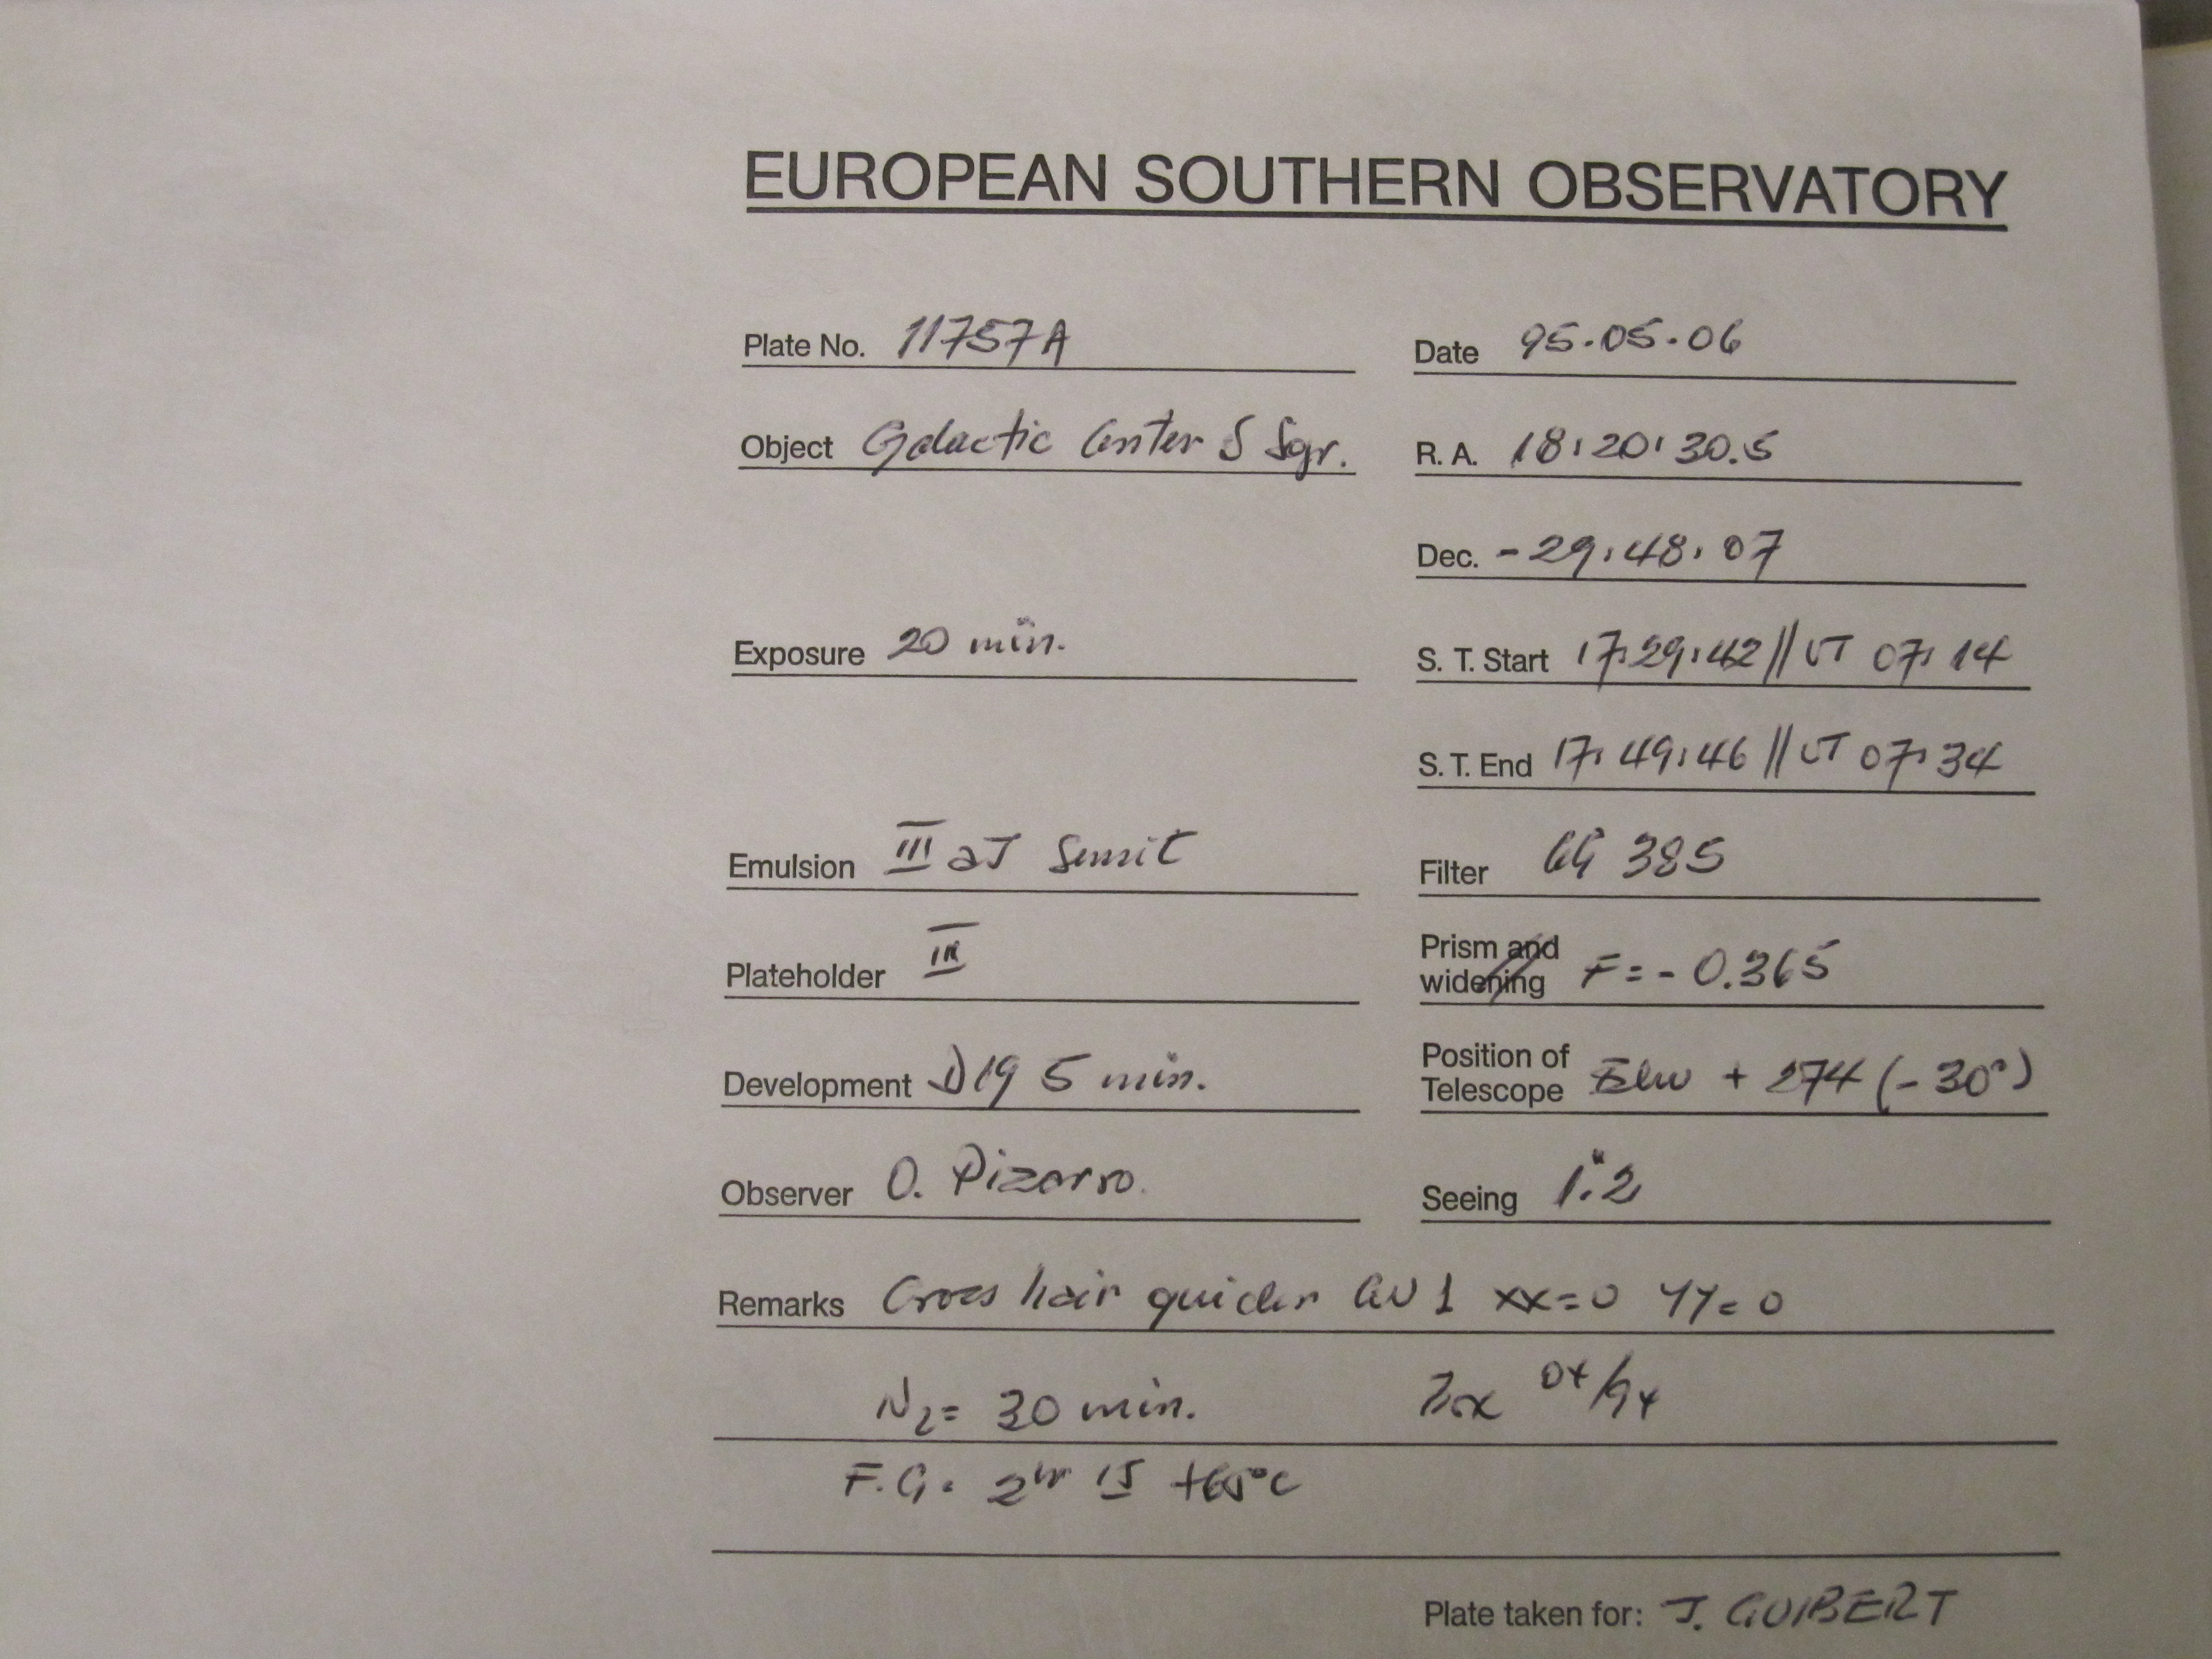 EUROPEAN SOUTHERN OBSERVATORY
Plate No. 11757A Date 95.05.06
Object Galactic Center S Sgr. R. A. 18:20:30.5
Dec. -29:48:07
Exposure 20 min. S. T. Start 17:29:42 // UT 07:14
S. T. End 17:49:46 // UT 07:34
Emulsion III aJ Filter GG 385
Plateholder Prism and widening F = - 0.365
Development D19 5 min. Position of Telescope + 274 (-30°)
Observer O. Pizarro. Seeing 1."2
Remarks Cross hair guider 1 xx=0 YY=0
N2= 30 min.
F.G. 2hr +65°C
Plate taken for: J. GUIBERT